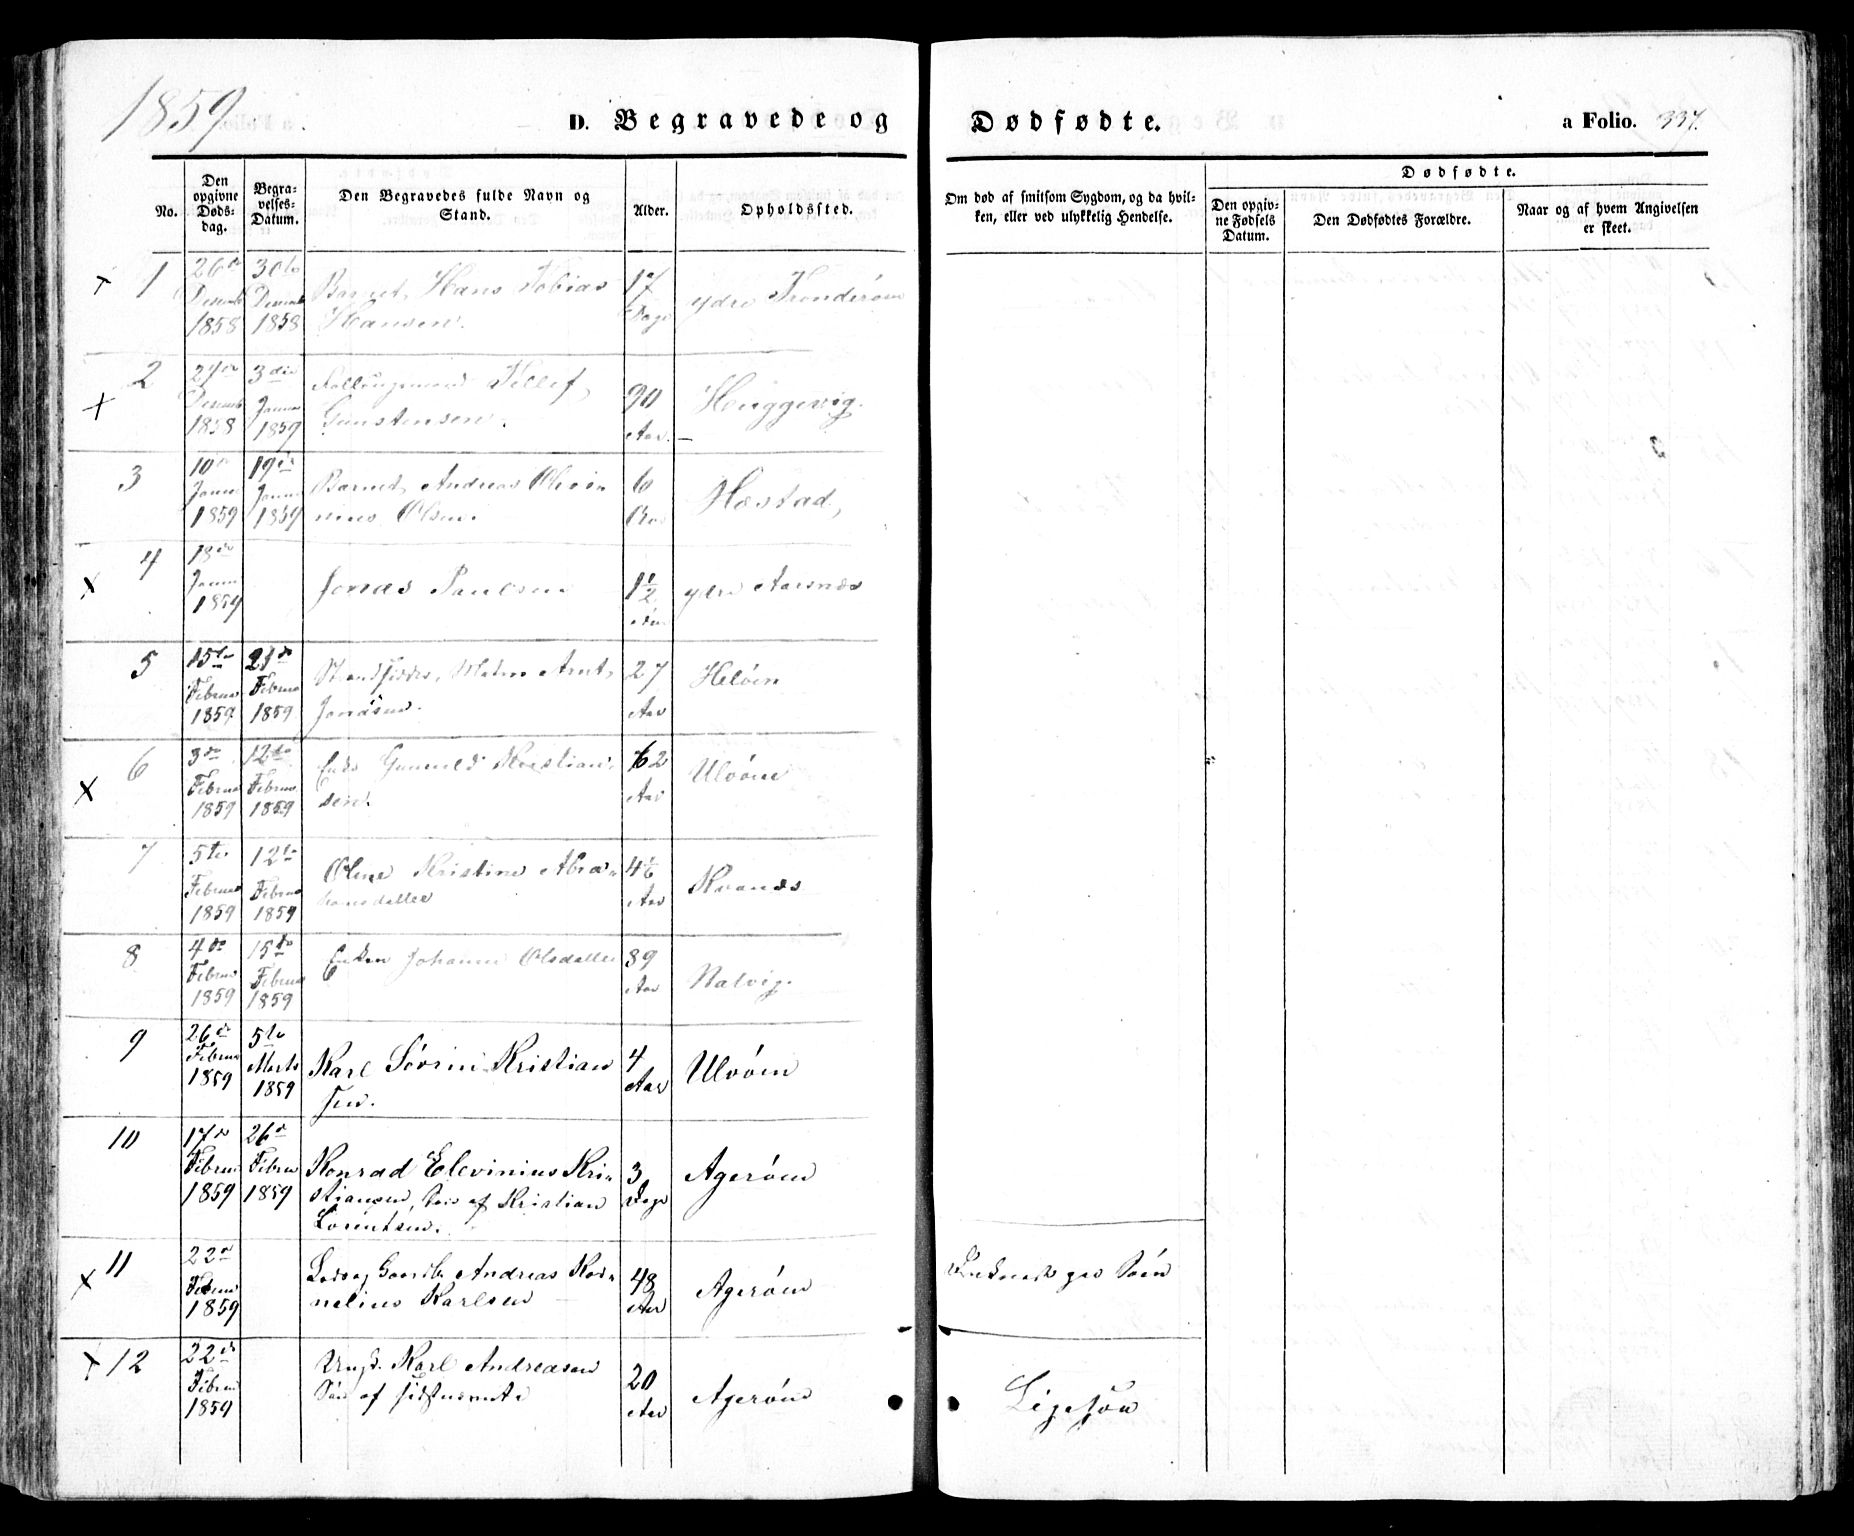 1859.
D. Begravede og Dødfødte. a Folio. 337.
No.
Den opgivne Døds-dag.
Begra-velses-Datum.
Den Begravedes fulde Navn og Stand.
Alder.
Opholdssted.
Om død af smitsom Sygdom, og da hvil-
ken, eller ved ulykkelig Hendelse.
Dødfødte.
Den opgiv-
ne Fødsels
Datum.
Den Dødfødtes Forældre.
Naar og af hvem Angivelsen
er skeet.
1 26de Desemb 1858 30te Desemb 1858 Barnet Hans Tobias
Hansen. 17 Dage ydre
2 27de Desemb 1858 3die Januar 1859 Tellef
Gunstensen. 90 Aar. Heggevig.
3 10de Januar 1859 19de Januar 1859 Barnet Andreas
Olsen. 6 Hæstad,
4 18de Januar 1859 Jonas Paulsen 1½ ydre Aarsnæs
5 15te Februar 1859 21de Februar 1859 Arnt
Jonasen. 27 Aar Heløen
6 3de Februar 1859 12te Februar 1859 Enke Gunnild Kristian-
sen. 62 Aar Ulvøen
7 5te Februar 1859 12te Februar 1859 Oline Kristine Abra-
hamsdatter Aar Kvanæs
8 4de Februar 1859 15de Februar 1859 Enken Johanne Olsdatter 89 Aar Natvig.
9 26de Februar 1859 5te Marts 1859 Karl Sørin Kristian
sen. 4 Aar Ulvøen
10 17de Februar 1859 26de Februar 1859 Konrad Elevinius Kri-
stiansen, Søn af Kristian
Lorentsen. 3 Dage Agerøen
11 22de Februar 1859 Andreas Kor-
nelius Karlsen 48 Aar Agerøen Druknede paa Søen
12 22de Februar 1859 Ungk. Karl Andreasen
Søn af sidstnevnte 20 Aar Agerøen Ligesøn